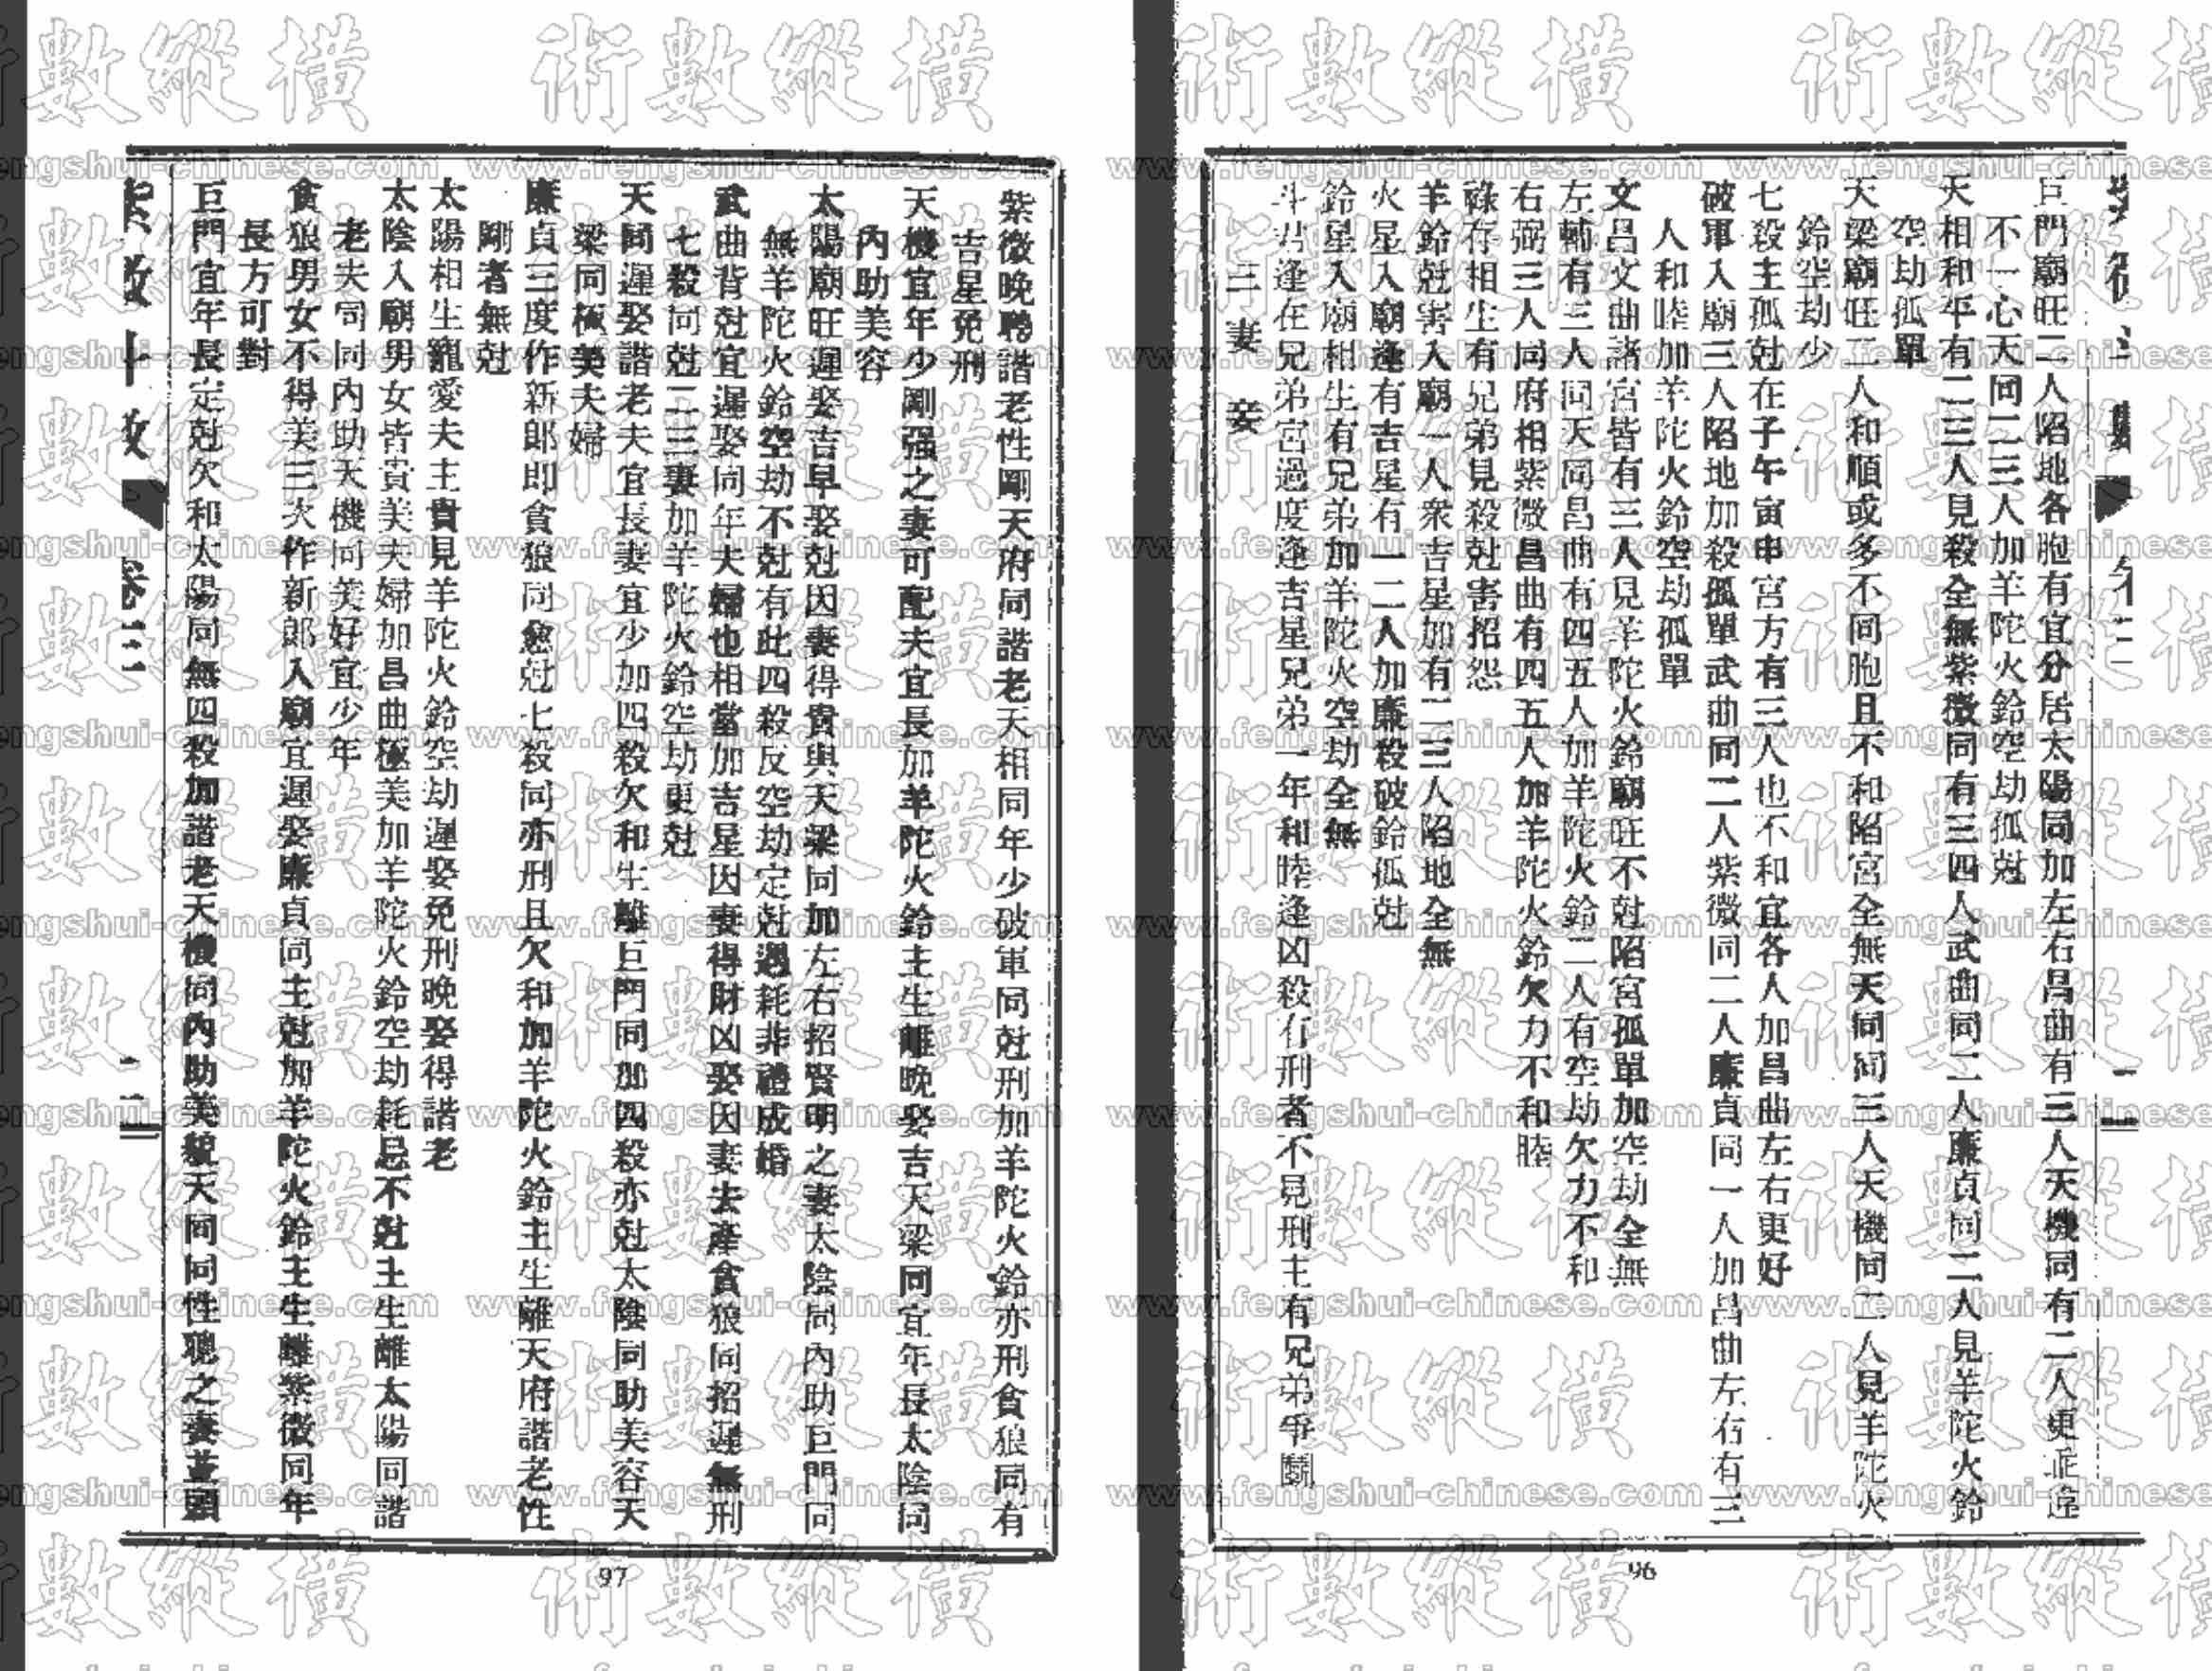 巨門廟旺二人陷地各胞有宜分居太陽同加左右昌曲有三人天機同有二人更乖違
不一心天同二三人加羊陀火鈴空劫孤尅
天相和平有二三人見殺全無紫微同有三四人武曲同二人廉貞同二人見羊陀火鈴
空劫孤單
天梁廟旺二人和順或多不同胞且不和陷宮全無天同同三人天機同二人見羊陀火
鈴空劫少
七殺主孤尅在子午寅申宮方有三人也不和宜各人加昌曲左右更好
破軍入廟三人陷地加殺孤單武曲同二人紫微同二人廉貞同一人加昌曲左右有三
人和睦加羊陀火鈴空劫孤單
文昌文曲諸宮皆有三人見羊陀火鈴廟旺不尅陷宮孤單加空劫全無
左輔有三人同天同昌曲有四五人加羊陀火鈴二人有空劫欠力不和
右弼三人同府相紫微昌曲有四五人加羊陀火鈴欠力不和睦
祿存相生有兄弟見殺尅害招怨
羊鈴尅害入廟一人衆吉星加有二三人陷地全無
火星入廟逢有吉星有一二人加廉殺破鈴孤尅
鈴星入廟相生有兄弟加羊陀火空劫全無
斗君逢在兄弟宮過度逢吉星兄弟一年和睦逢凶殺有刑者不見刑主有兄弟爭鬪
三妻妾
96
紫微晚聘諧老性剛天府同諧老天相同年少破軍同尅刑加羊陀火鈴亦刑貪狼同有
吉星免刑
天機宜年少剛强之妻可配夫宜長加羊陀火鈴主生離晚娶吉天梁同宜年長太陰同
內助美容
太陽廟旺遲娶吉早娶尅因妻得貴與天梁同加左右招賢明之妻太陰同內助巨門同
無羊陀火鈴空劫不尅有此四殺反空劫定尅遇耗非禮成婚
武曲背尅宜遲娶同年夫婦也相當加吉星因妻得財凶娶因妻去產貪狼同招遲無刑
七殺同尅二三妻加羊陀火鈴空劫更尅
天同遲娶諧老夫宜長妻宜少加四殺欠和生離巨門同加四殺亦尅太陰同助美容天
梁同極美夫婦
廉貞三度作新郎即貪狼同愈尅七殺同亦刑且欠和加羊陀火鈴主生離天府諧老性
剛者無尅
太陽相生寵愛夫主貴見羊陀火鈴空劫遲娶免刑晚娶得諧老
太陰入廟男女皆貴美夫婦加昌曲極美加羊陀火鈴空劫耗忌不尅主生離太陽同諧
老夫同同內助天機同美好宜少年
貪狼男女不得美三次作新郎入廟宜遲娶廉貞同主尅加羊陀火鈴主生離紫微同年
長方可對
巨門宜年長定尅欠和太陽同無四殺加諧老天機同內助美貌天同同性聰之妻並頭
卷三
97